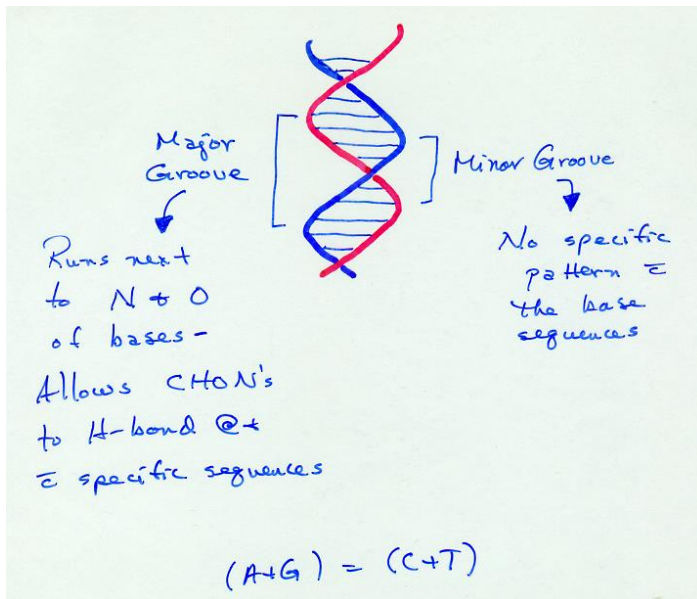 Major
Groove
Minor Groove
Runs next
to N + O
of bases -
Allows CHON's
to H-bond @+
c̄ specific sequences
No specific
pattern c̄
the base
sequences
(A+G) = (C+T)